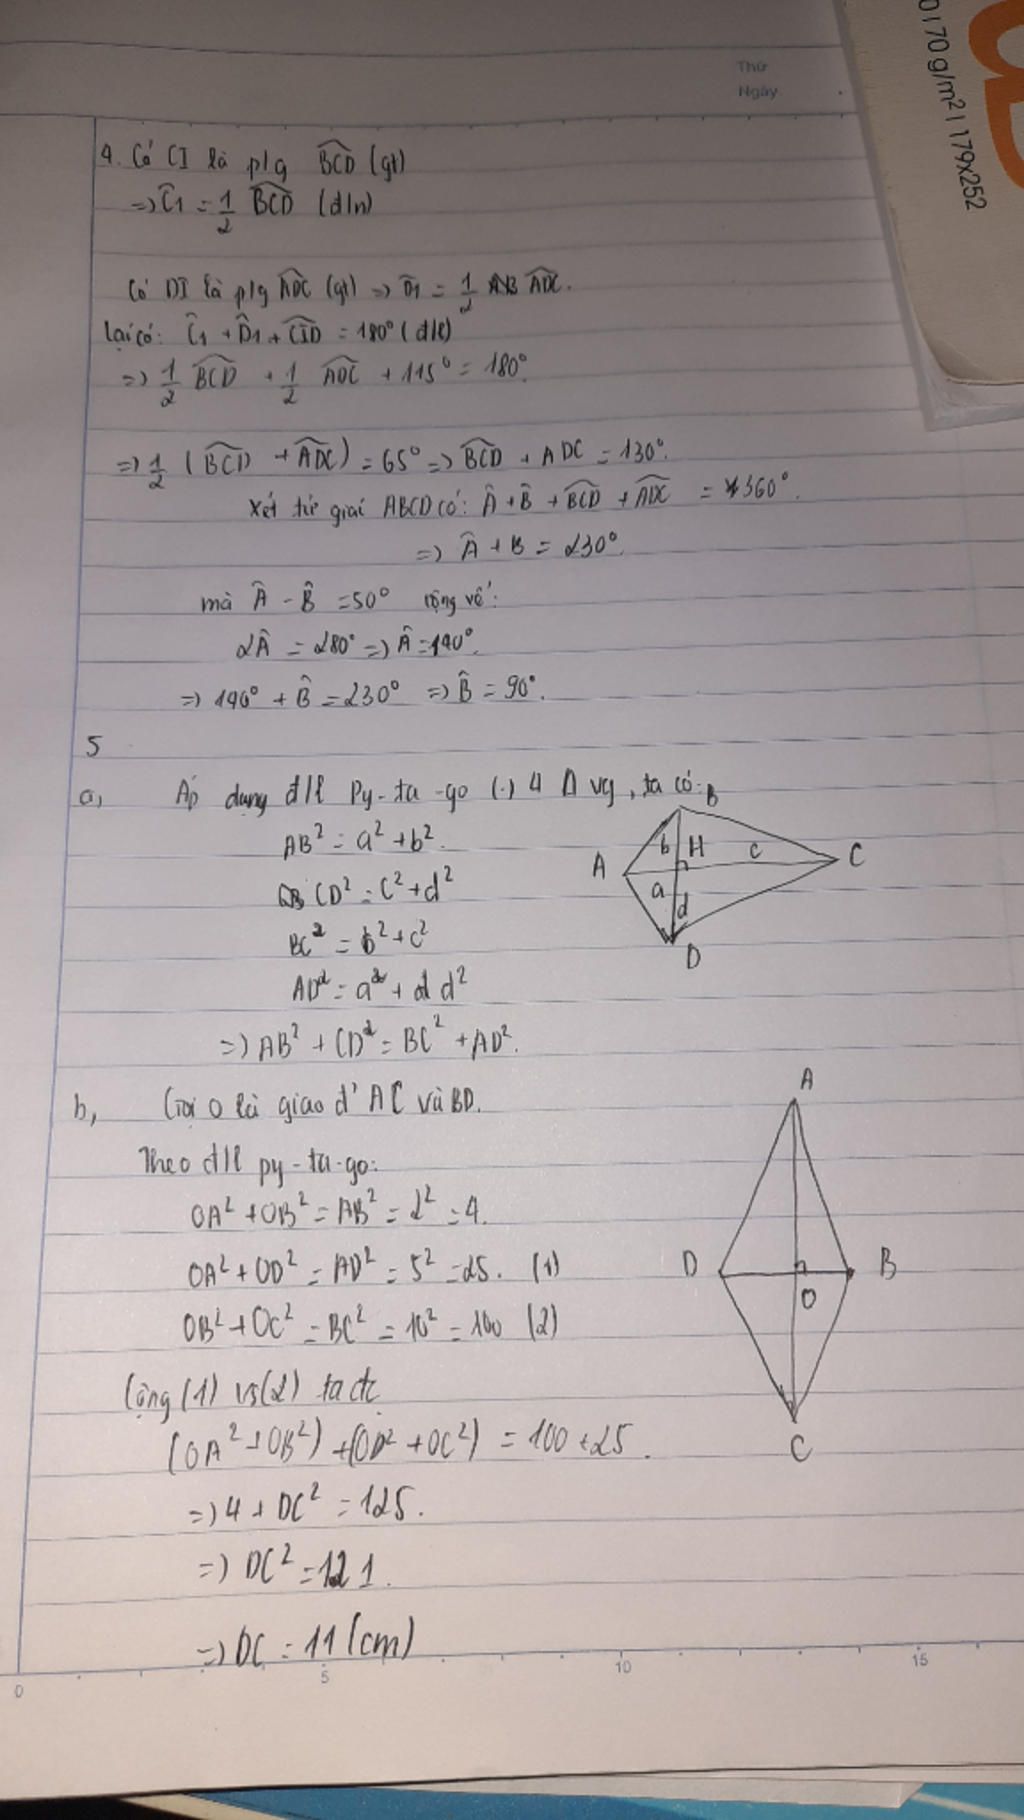 Thứ
Ngày
0170 g/m² | 179x252
4. Có CI là p/g BCD (gt)
=> C1 = 1/2 BCD (đ/n)
Có DI là p/g ADC (gt) => D1 = 1/2 ADC.
lại có: C1 + D1 + CID = 180° (đ/l)
=> 1/2 BCD + 1/2 ADC + 115° = 180°.
=> 1/2 (BCD + ADC) = 65° => BCD + ADC = 130°.
Xét tứ giác ABCD có: A + B + BCD + ADC = 360°.
=> A + B = 230°.
mà A - B = 50° cộng vế:
2A = 280° => A = 140°.
=> 140° + B = 230° => B = 90°.
5
a, Áp dụng đ/l Py-ta-go (.) 4 Δ vg, ta có:
AB² = a² + b².
CD² = c² + d²
BC² = b² + c²
AD² = a² + d²
=> AB² + CD² = BC² + AD².
B
A
b
H
c
C
a
d
D
b, Gọi O là giao đ' AC và BD.
Theo đ/l py-ta-go:
OA² + OB² = AB² = 2² = 4.
OA² + OD² = AD² = 5² = 25. (1)
OB² + OC² = BC² = 10² = 100 (2)
Cộng (1) vs (2) ta đc
(OA² + OB²) + (OD² + OC²) = 100 + 25.
=> 4 + DC² = 125.
=> DC² = 121.
=> DC = 11 (cm)
A
D
B
O
C
0 5 10 15